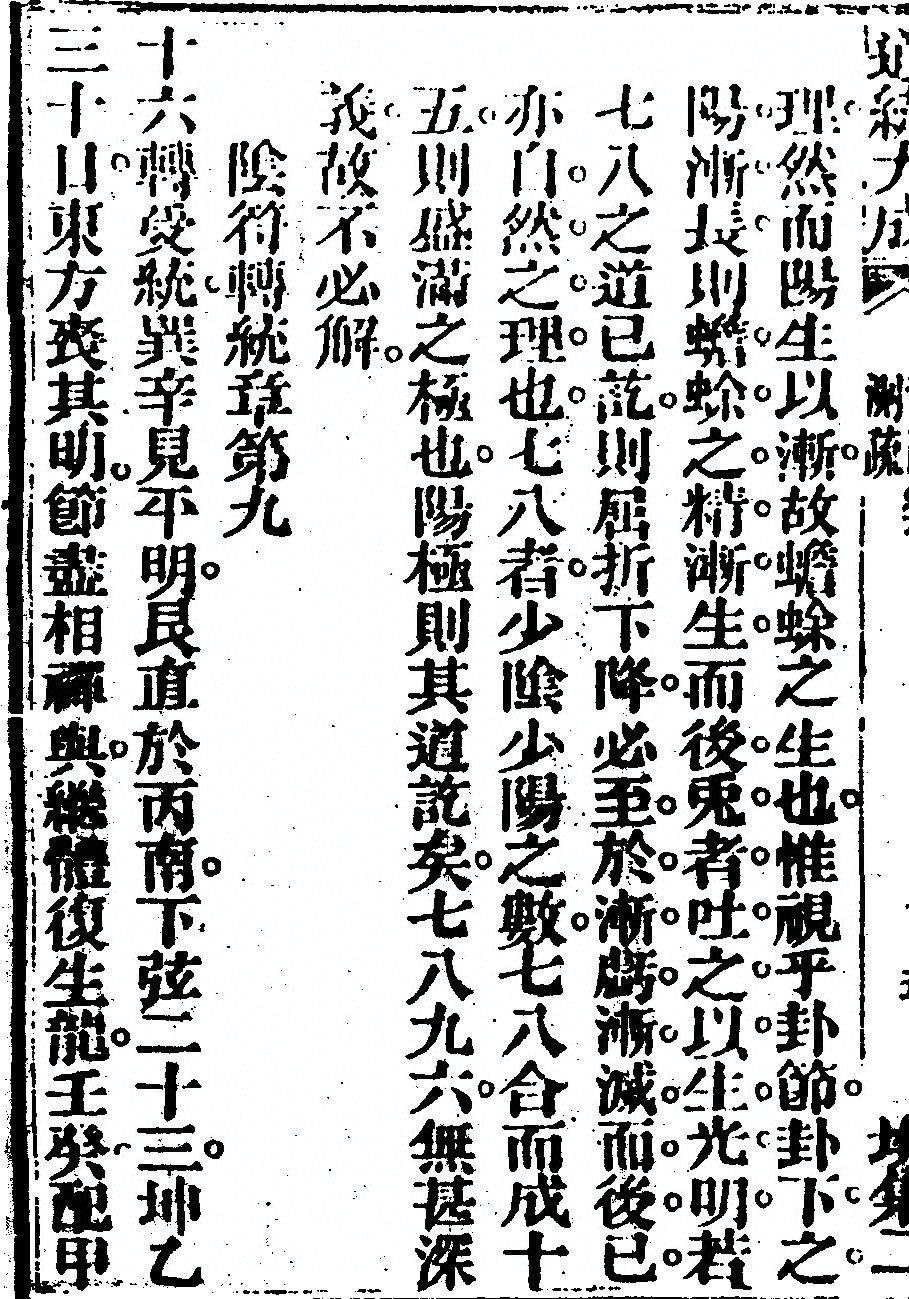 理然而陽生以漸故蟾蜍之生也惟視乎卦節卦下之
陽漸長則蟾蜍之精漸生而後兎者吐之以生光明若
七八之道已訖則屈折下降必至於漸虧漸減而後已
亦自然之理也七八者少陰少陽之數七八合而成十
五則盛滿之極也陽極則其道訖矣七八九六無甚深
義故不必解
陰符轉統章第九
十六轉受統巽辛見平明艮直於丙南下弦二十三坤乙
三十日東方喪其明節盡相禪與繼體復生龍壬癸配甲